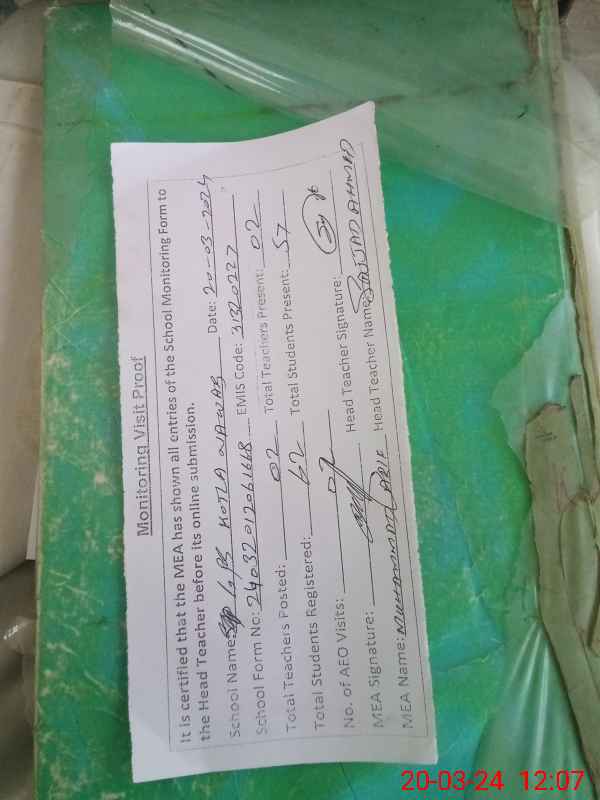 Monitoring Visit Proof
It is certified that the MEA has shown all entries of the School Monitoring Form to
the Head Teacher before its online submission.
School Name: GPS KOTLA NAWAB Date: 20-03-2024
School Form No: 24032012061668 EMIS Code: 31320227
Total Teachers Posted: 02 Total Teachers Present: 02
Total Students Registered: 62 Total Students Present: 57
No. of AEO Visits: 02
MEA Signature: Head Teacher Signature:
MEA Name: MUHAMMAD ARIF Head Teacher Name: SAJJAD AHMAD
20-03-24 12:07